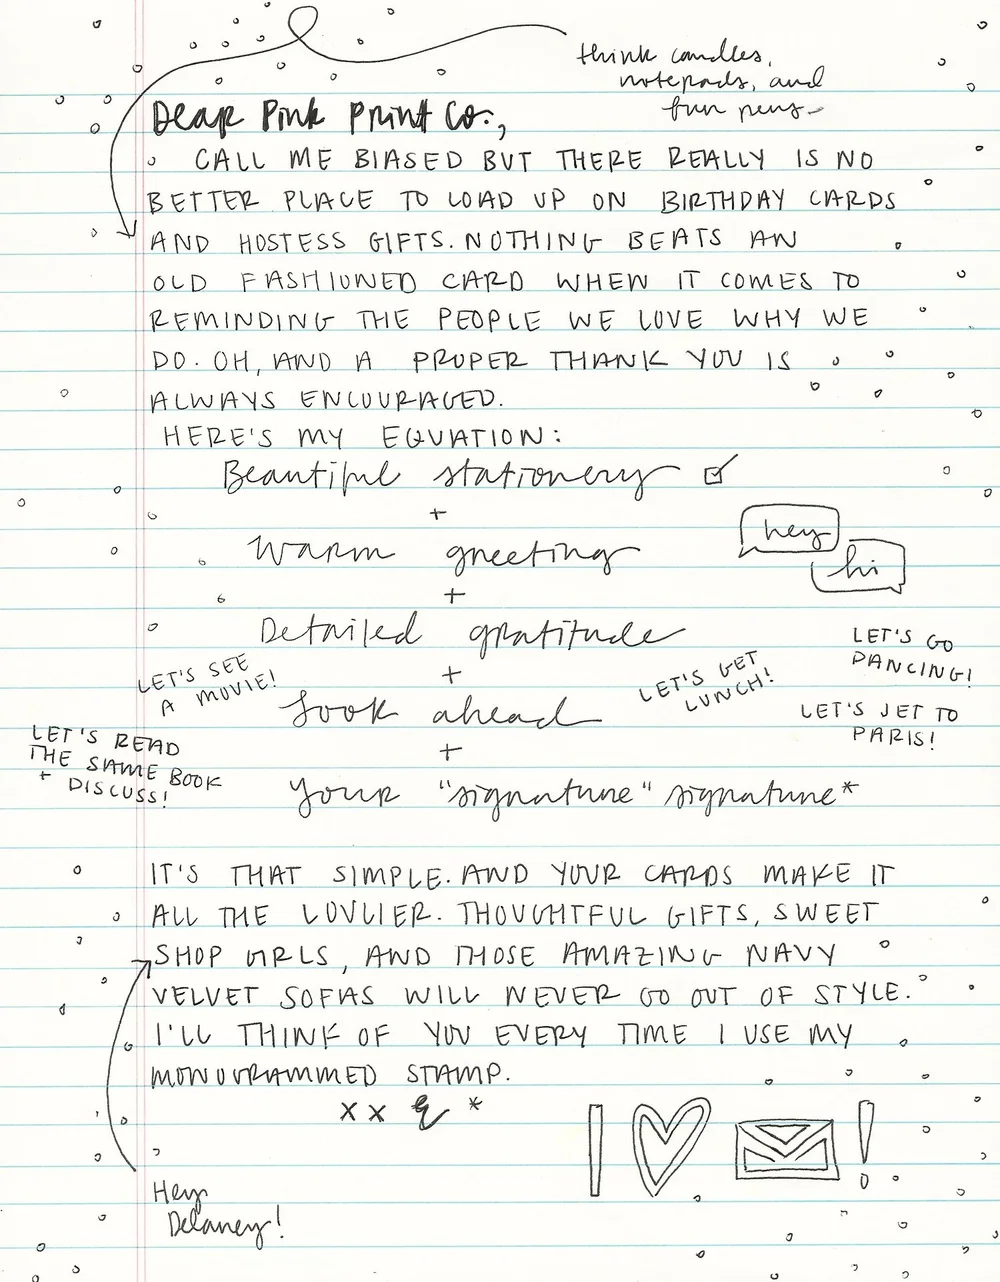 think candles,
notepads, and
fun pens-
Dear Pink Print Co.,
CALL ME BIASED BUT THERE REALLY IS NO
BETTER PLACE TO LOAD UP ON BIRTHDAY CARDS
AND HOSTESS GIFTS. NOTHING BEATS AN
OLD FASHIONED CARD WHEN IT COMES TO
REMINDING THE PEOPLE WE LOVE WHY WE
DO. OH, AND A PROPER THANK YOU IS
ALWAYS ENCOURAGED.
HERE'S MY EQUATION:
Beautiful stationery
+
Warm greeting
hey
hi
+
Detailed gratitude
+
LET'S SEE
A MOVIE!
Look ahead
LET'S GET
LUNCH!
LET'S GO
DANCING!
LET'S JET TO
PARIS!
+
LET'S READ
THE SAME BOOK
+ DISCUSS!
Your "signature" signature*
IT'S THAT SIMPLE. AND YOUR CARDS MAKE IT
ALL THE LOVLIER. THOUGHTFUL GIFTS, SWEET
SHOP GIRLS, AND THOSE AMAZING NAVY
VELVET SOFAS WILL NEVER GO OUT OF STYLE.
I'LL THINK OF YOU EVERY TIME I USE MY
MONOGRAMMED STAMP.
x x *
I !
Hey
Delaney!